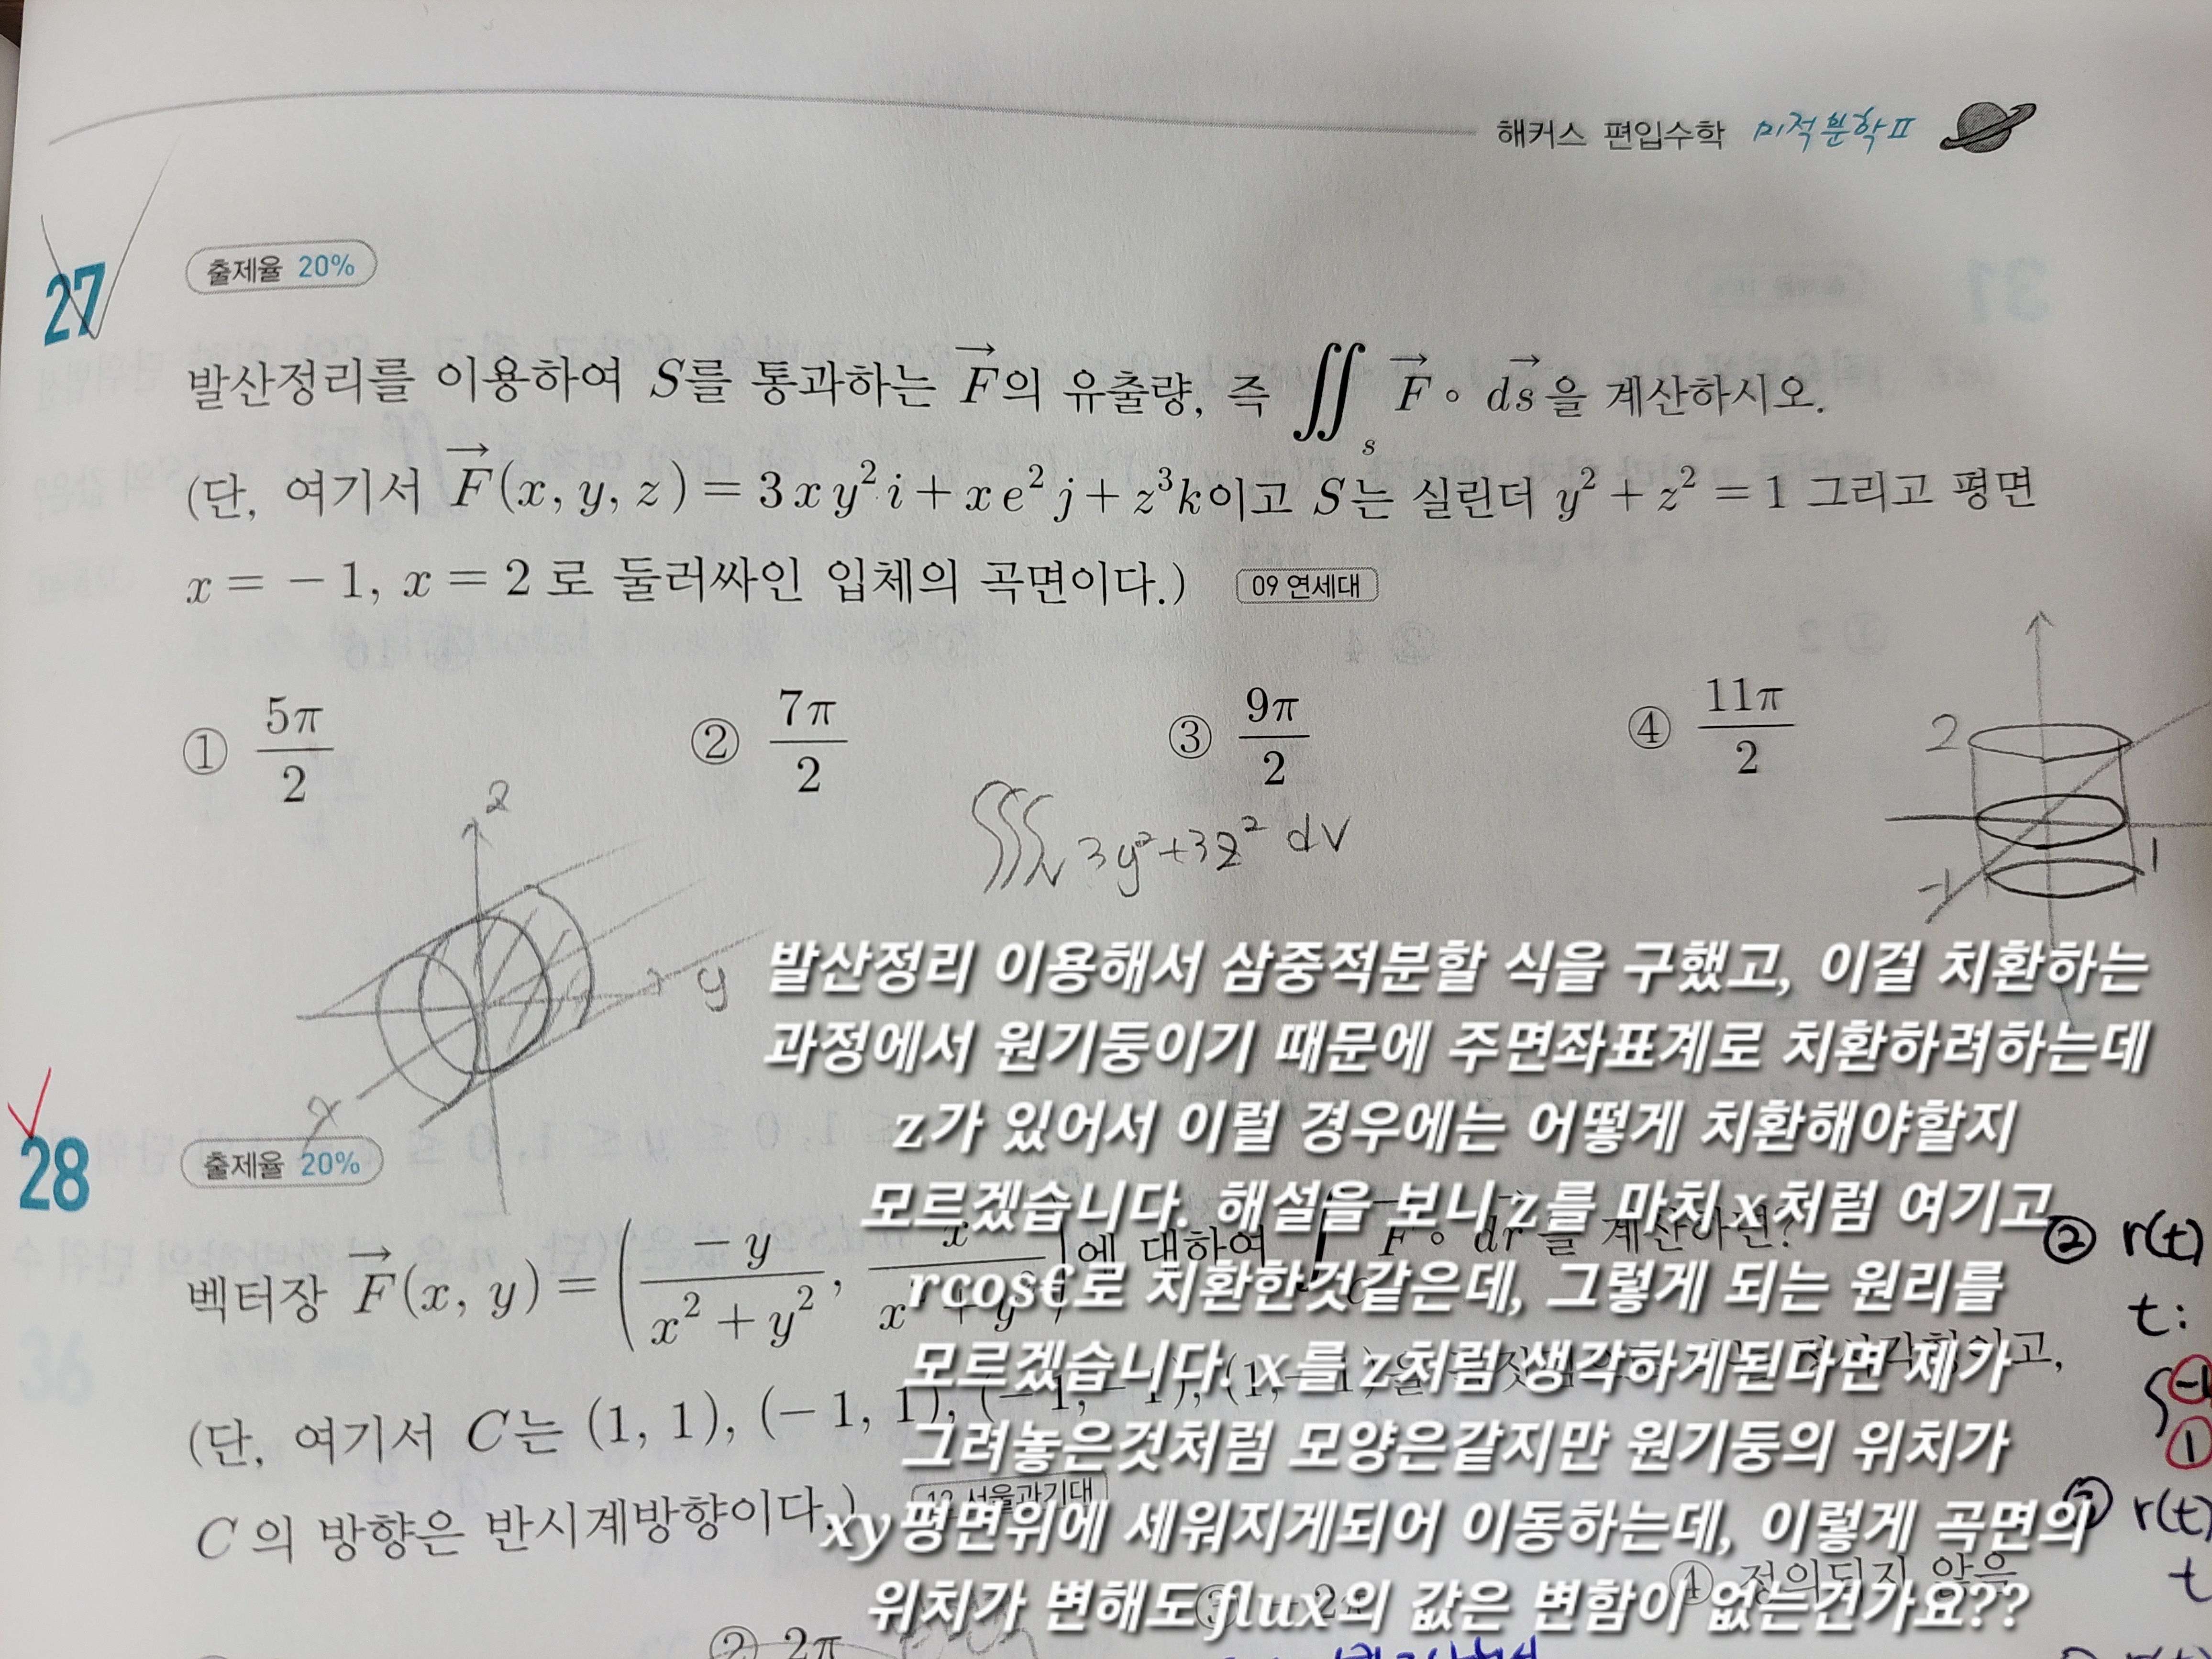 해커스 편입수학 미적분학 II
27
출제율 20%
발산정리를 이용하여 S를 통과하는 \vec{F}의 유출량, 즉 ∬_s \vec{F}∘d\vec{s}을 계산하시오.
(단, 여기서 \vec{F}(x, y, z) = 3xy²i + xe²j + z³k이고 S는 실린더 y² + z² = 1 그리고 평면
x = −1, x = 2로 둘러싸인 입체의 곡면이다.) 09 연세대
① 5π/2 ② 7π/2 ③ 9π/2 ④ 11π/2
2
-1
1
z
y
x
∭_V 3y²+3z² dV
발산정리 이용해서 삼중적분할 식을 구했고, 이걸 치환하는
과정에서 원기둥이기 때문에 주면좌표계로 치환하려하는데
z가 있어서 이럴 경우에는 어떻게 치환해야할지
모르겠습니다. 해설을 보니 z를 마치 x처럼 여기고
rcos€로 치환한것같은데, 그렇게 되는 원리를
모르겠습니다. x를 z처럼 생각하게된다면 제가
그려놓은것처럼 모양은같지만 원기둥의 위치가
xy평면위에 세워지게되어 이동하는데, 이렇게 곡면의
위치가 변해도 flux의 값은 변함이 없는건가요??
28
출제율 20%
벡터장 \vec{F}(x, y) = (−y/(x² + y²), x/(x² + y²))에 대하여 ∫_C \vec{F}∘d\vec{r}를 계산하면?
(단, 여기서 C는 (1, 1), (−1, 1), (−1, −1), (1, −1)을
C의 방향은 반시계방향이다.) 12 서울과기대
② 2π
④ 정의되지 않음
② r(t)
t:
-1
1
r(t)
t